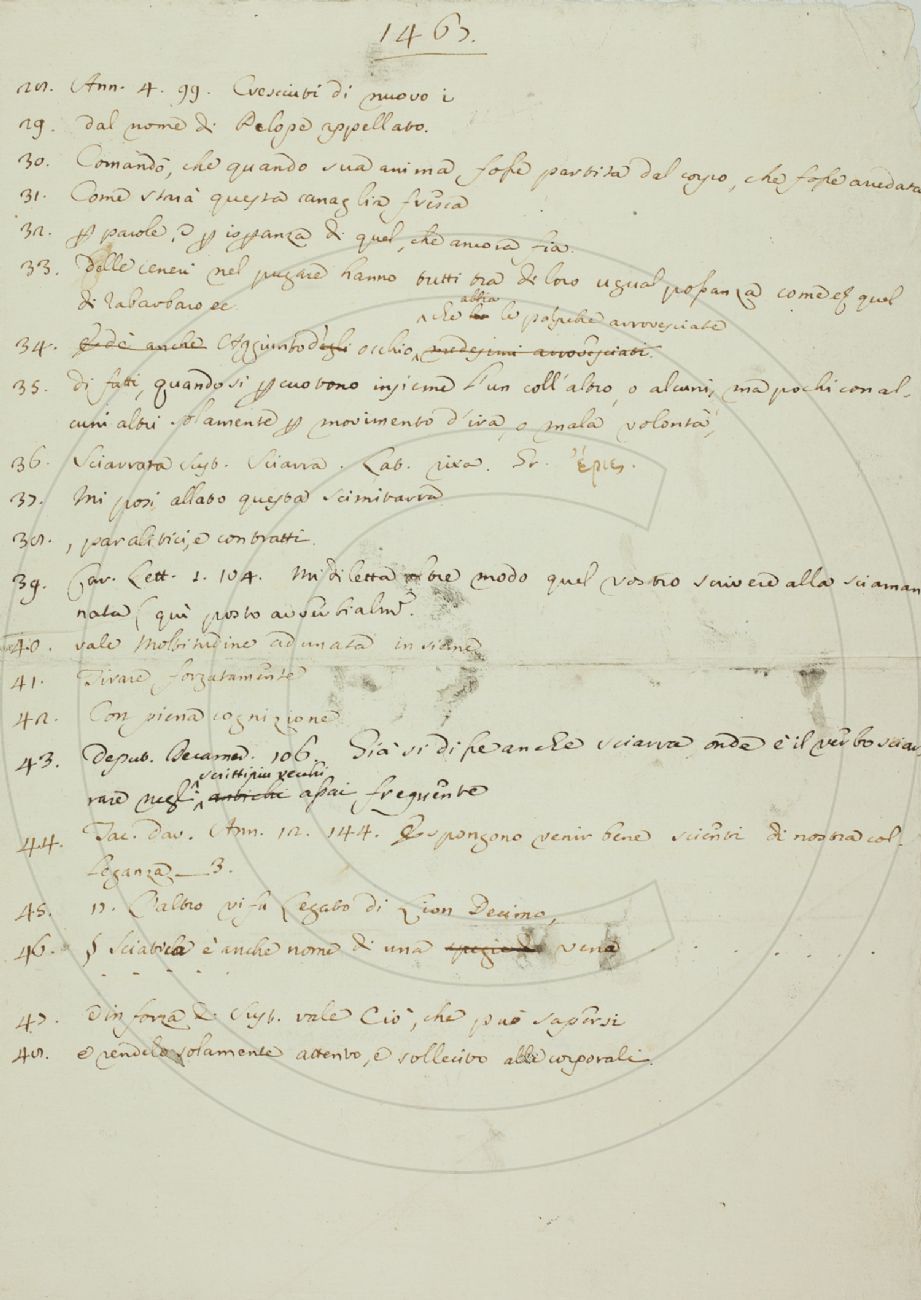 1467.
28. Ann. 4. 99. Cresciuti di nuovo i
29. dal nome di Pelope appellato.
30. Comandò, che quando sua anima fosse partita dal corpo, che fosse arredata
31. Come starà questa canaglia fresca
32. ꝑ parole, o ꝑ isꝑanza di quel, che ancora fia.
33. Delle ceneri nel purgare hanno tutti tra di loro ugual possanza come quel
di rabarbaro ec.
che altra le le palpebre arrovesciate
34. ed è anche Aggiunto degli occhio, medesimi arrovesciati.
35. di fatti, quando si ꝑcuotono insieme l'un coll'altro, o alcuni, ma pochi con al-
cuni altri solamente ꝑ movimento d'ira, o mala volontà,
36. Sciarrata Sust. Sciarra. Lat. rixa. Gr. ἔρις.
37. Mi posi allato questa scimitarra
38. , paralitici, e contratti.
39. Car. Lett. 1. 104. Mi diletta oltre modo quel vostro scrivere alla sciaman
nata (qui posto avverbialmᵉ.
40. vale Moltitudine adunata insieme
41. Tirare forzatamente
42. Con piena cognizione
43. Deput. Decamer. 106. Già si disse anche sciarra, onde è il verbo sciar-
scritti più vecchi
rare negl' antichi assai frequente
44. Tac. Dav. Ann. 12. 144. Espongono venir bene scienti di nostra col-
leganza __ 3.
45. 17. L'altro vi fu Legato di Lion Decimo,
46. § Sciatica è anche nome di una spezie di vena . . . . . .
. . . .
47. In forza di Sust. vale Ciò, che può sapersi
48. e rendelo solamente attento, e sollecito alle corporali.